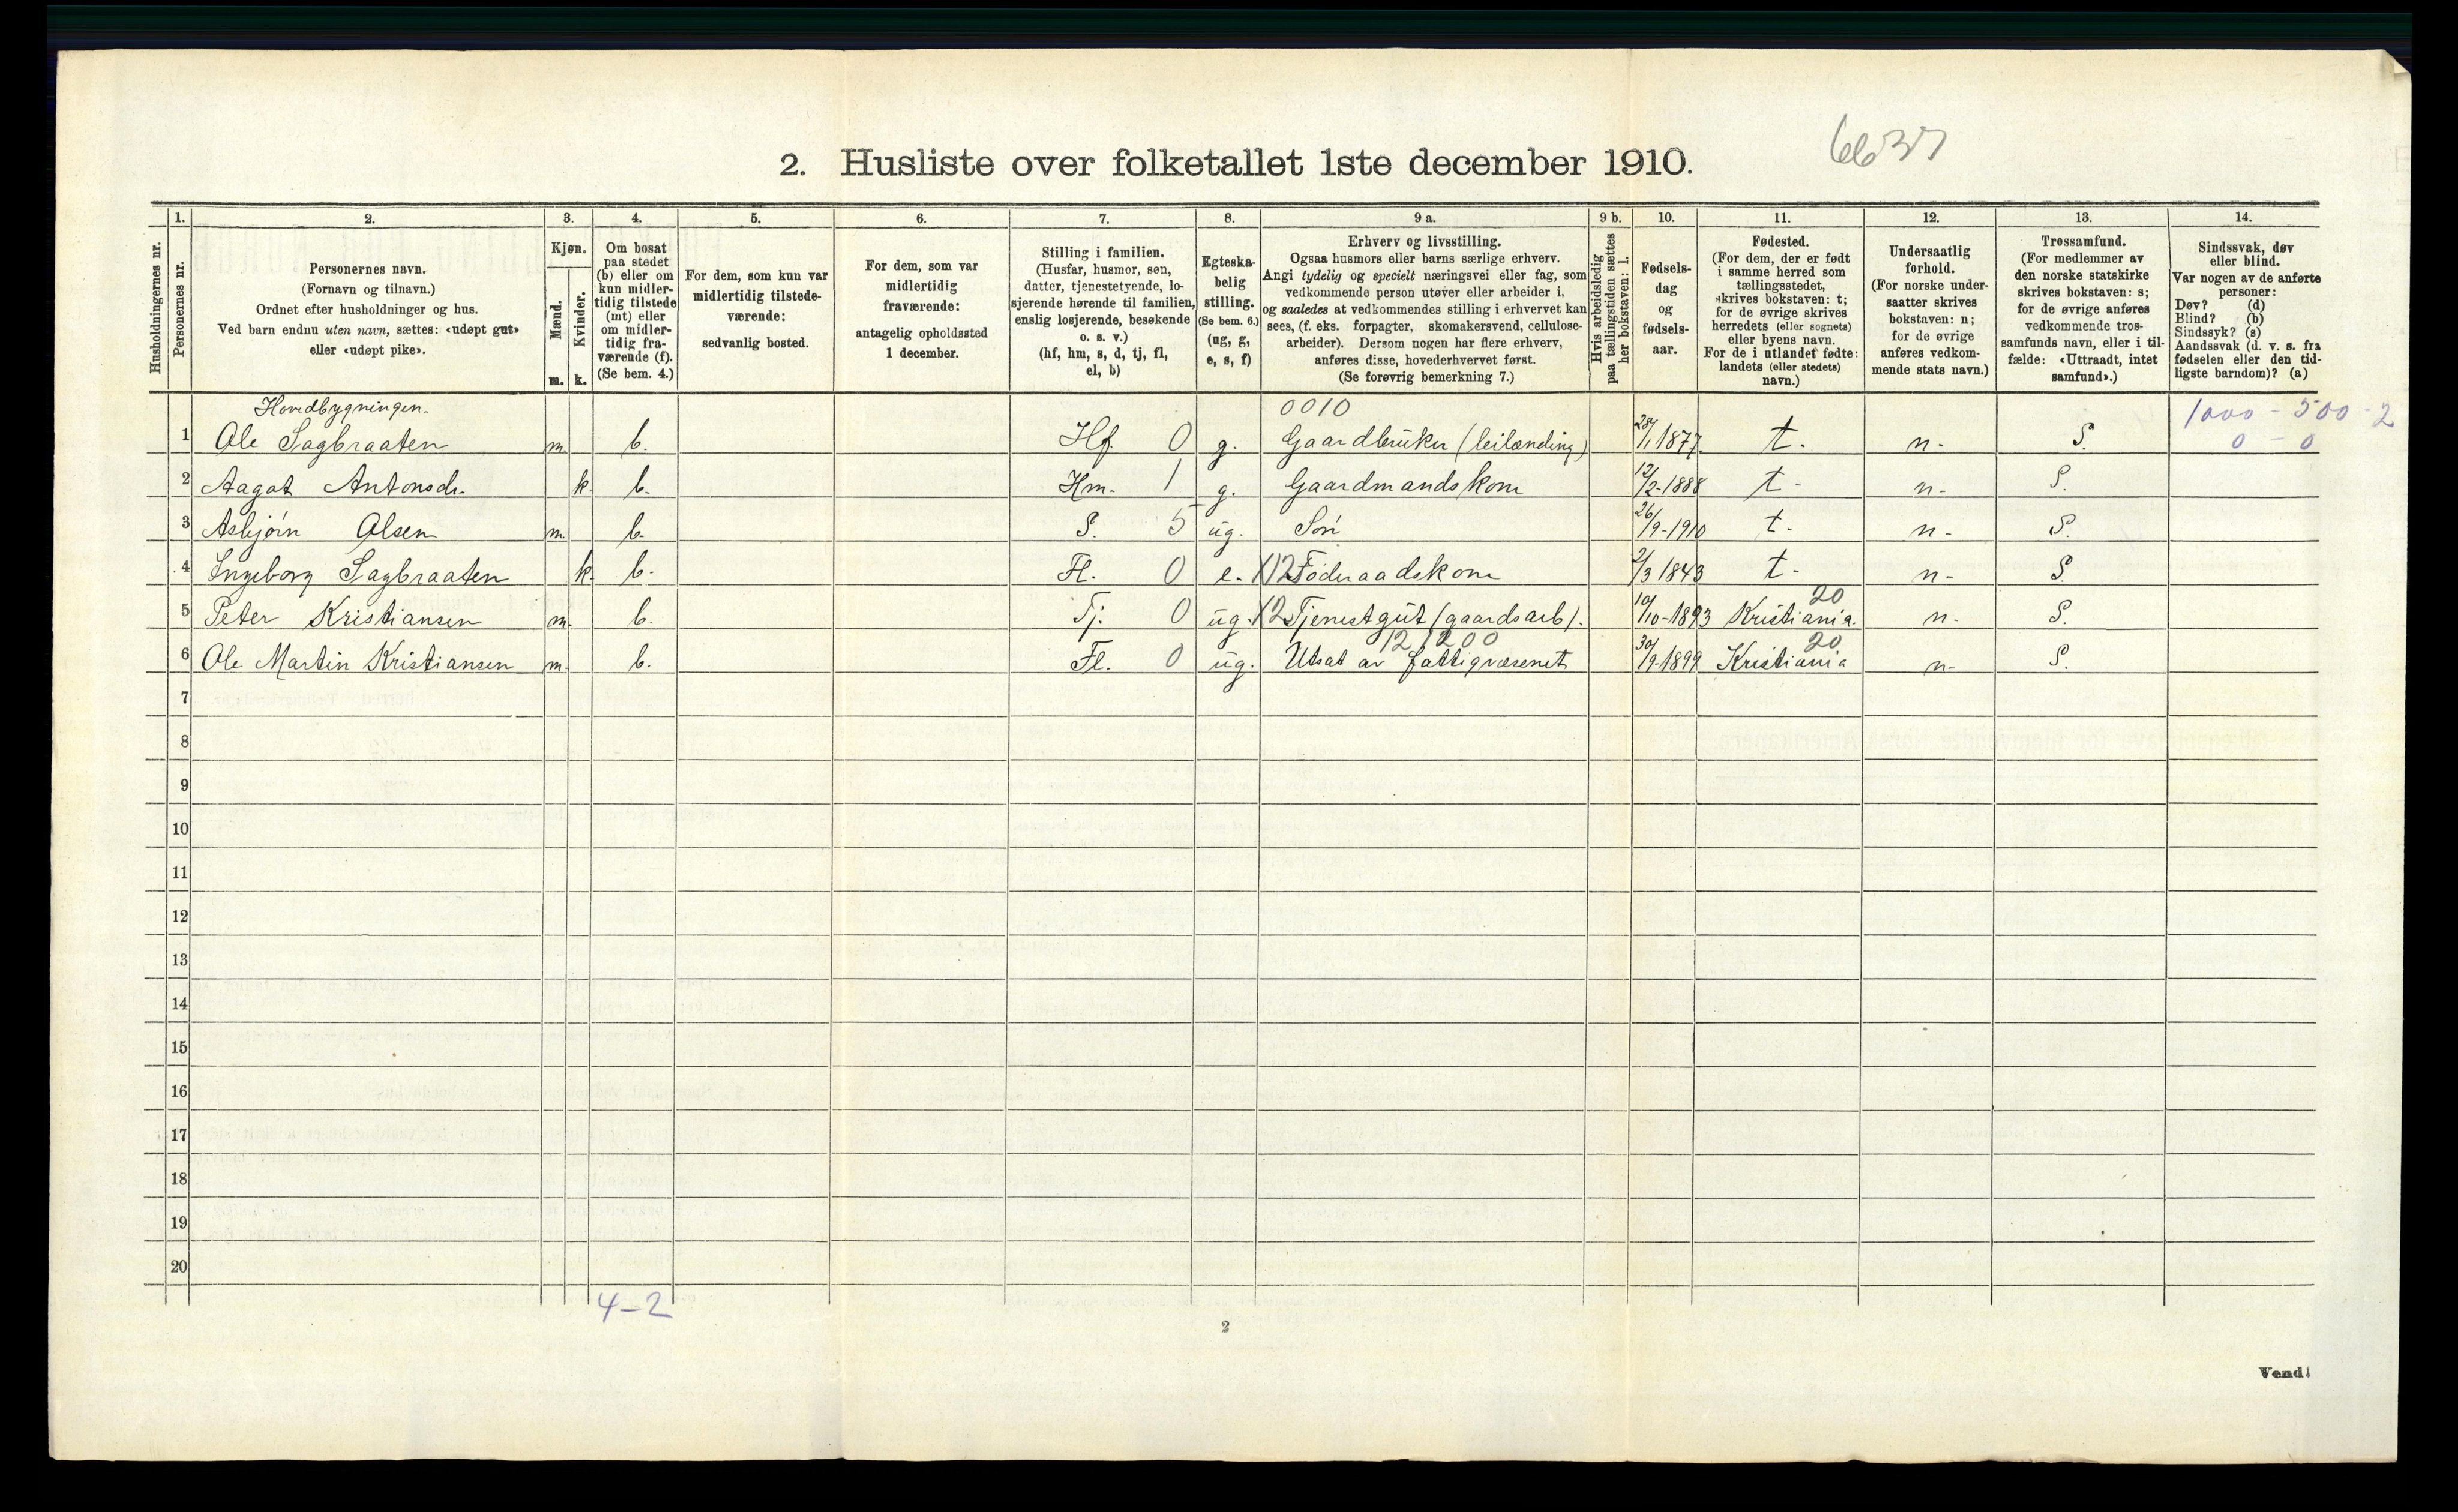 6637
2. Husliste over folketallet 1ste december 1910.
Husholdningernes nr.
1.
Personernes nr.
2.
Personernes navn.
(Fornavn og tilnavn.)
Ordnet efter husholdninger og hus.
Ved barn endnu uten navn, sættes: «udøpt gut»
eller «udøpt pike».
3.
Kjøn.
Mænd.
Kvinder.
m. k.
4.
Om bosat
paa stedet
(b) eller om
kun midler-
tidig tilstede
(mt) eller
om midler-
tidig fra-
værende (f).
(Se bem. 4.)
5.
For dem, som kun var
midlertidig tilstede-
værende:
sedvanlig bosted.
6.
For dem, som var
midlertidig
fraværende:
antagelig opholdssted
1 december.
7.
Stilling i familien.
(Husfar, husmor, søn,
datter, tjenestetyende, lo-
sjerende hørende til familien,
enslig losjerende, besøkende
o. s. v.)
(hf, hm, s, d, tj, fl,
el, b)
8.
Egteska-
belig
stilling.
(Se bem. 6.)
(ug, g,
e, s, f)
9 a.
Erhverv og livsstilling.
Ogsaa husmors eller barns særlige erhverv.
Angi tydelig og specielt næringsvei eller fag, som
vedkommende person utøver eller arbeider i,
og saaledes at vedkommendes stilling i erhvervet kan
sees, (f. eks. forpagter, skomakersvend, cellulose-
arbeider). Dersom nogen har flere erhverv,
anføres disse, hovederhvervet først.
(Se forøvrig bemerkning 7.)
9 b.
Hvis arbeidsledig
paa tællingstiden sættes
her bokstaven: l.
10.
Fødsels-
dag
og
fødsels-
aar.
11.
Fødested.
(For dem, der er født
i samme herred som
tællingsstedet,
skrives bokstaven: t;
for de øvrige skrives
herredets (eller sognets)
eller byens navn.
For de i utlandet fødte:
landets (eller stedets)
navn.)
12.
Undersaatlig
forhold.
(For norske under-
saatter skrives
bokstaven: n;
for de øvrige
anføres vedkom-
mende stats navn.)
13.
Trossamfund.
(For medlemmer av
den norske statskirke
skrives bokstaven: s;
for de øvrige anføres
vedkommende tros-
samfunds navn, eller i til-
fælde: «Uttraadt, intet
samfund».)
14.
Sindssvak, døv
eller blind.
Var nogen av de anførte
personer:
Døv? (d)
Blind? (b)
Sindssyk? (s)
Aandssvak (d. v. s. fra
fødselen eller den tid-
ligste barndom)? (a)
Hovedbygningen. 0010 1000 - 500 - 2
1 Ole Sagbraaten m. b. Hf. 0 g. Gaardbruker (leilænding) 28/1 1877 t. n. S. 0 - 0
2 Aagot Antonsdr. k. b. Hm. 1 g. Gaardmandskone 12/2-1888 t. n. S.
3 Asbjørn Olsen m. b. S. 5 ug. Søn 26/9-1910 t. n. S.
4 Ingeborg Sagbraaten k. b. Fl. 0 e. X12 Føderaadskone 2/3 1843 t. n. S.
20
5 Peter Kristiansen m. b. Tj. 0 ug. X2 Tjenestgut (gaardsarb). 10/10-1893 Kristiania. n. S.
12 1200 20
6 Ole Martin Kristiansen m. b. Fl. 0 ug. Utsat av fattigvæsenet 30/9-1899 Kristiania n. S.
7
8
9
10
11
12
13
14
15
16
17
18
19
20
4-2
2
Vend!